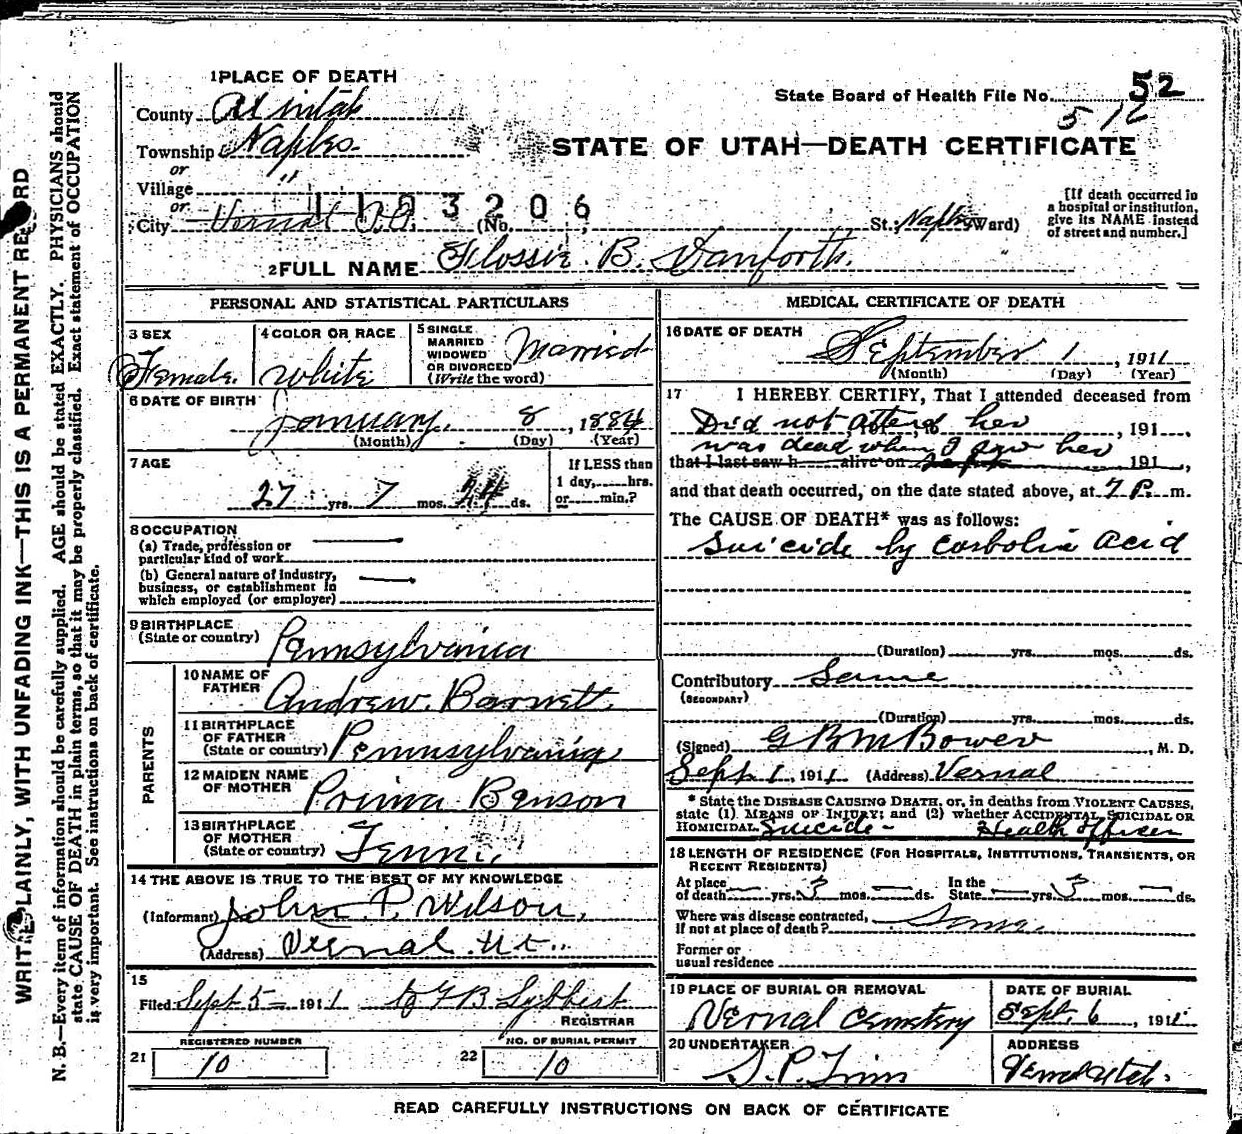 WRITE PLAINLY, WITH UNFADING INK—THIS IS A PERMANENT RECORD
N. B.—Every item of information should be carefully supplied. AGE should be stated EXACTLY. PHYSICIANS should
state CAUSE OF DEATH in plain terms, so that it may be properly classified. Exact statement of OCCUPATION
is very important. See instructions on back of certificate.
1 PLACE OF DEATH
County Uintah
Township Naples
or
Village "
or
City Vernal P.O. (No. St.; Naples Ward)
1103206
State Board of Health File No. 52
512
STATE OF UTAH—DEATH CERTIFICATE
[If death occurred in
a hospital or institution,
give its NAME instead
of street and number.]
2 FULL NAME Flossie B. Danforth.
PERSONAL AND STATISTICAL PARTICULARS
3 SEX
Female.
4 COLOR OR RACE
White
5 SINGLE
MARRIED
WIDOWED
OR DIVORCED
(Write the word)
Married
6 DATE OF BIRTH
January. 8, 1884
(Month) (Day) (Year)
7 AGE
27 yrs. 7 mos. 24 ds.
If LESS than
1 day, hrs.
or min.?
8 OCCUPATION
(a) Trade, profession or
particular kind of work
(b) General nature of industry,
business, or establishment in
which employed (or employer)
9 BIRTHPLACE
(State or country) Pennsylvania
PARENTS
10 NAME OF
FATHER Andrew Barnett.
11 BIRTHPLACE
OF FATHER
(State or country) Pennsylvania
12 MAIDEN NAME
OF MOTHER Prima Benson
13 BIRTHPLACE
OF MOTHER
(State or country) Tenn.
14 THE ABOVE IS TRUE TO THE BEST OF MY KNOWLEDGE
(Informant) John P. Wilson.
(Address) Vernal Ut.
15
Filed Sept 5 1911
REGISTRAR
21 REGISTERED NUMBER
10
22 NO. OF BURIAL PERMIT
10
MEDICAL CERTIFICATE OF DEATH
16 DATE OF DEATH
September 1, 1911
(Month) (Day) (Year)
17 I HEREBY CERTIFY, That I attended deceased from
Did not attend her, 191
was dead when I saw her
that I last saw h alive on Sept, 191,
and that death occurred, on the date stated above, at 7 P. m.
The CAUSE OF DEATH* was as follows:
Suicide by Carbolic Acid
(Duration) yrs. mos. ds.
Contributory Same
(SECONDARY)
(Duration) yrs. mos. ds.
(Signed) G B M Bower, M. D.
Sept 1, 1911 (Address) Vernal
* State the DISEASE CAUSING DEATH, or, in deaths from VIOLENT CAUSES,
state (1) MEANS OF INJURY; and (2) whether ACCIDENTAL, SUICIDAL OR
HOMICIDAL. Suicide - Health officer
18 LENGTH OF RESIDENCE (FOR HOSPITALS, INSTITUTIONS, TRANSIENTS, OR
RECENT RESIDENTS)
At place
of death — yrs. 3 mos. — ds. In the
State — yrs. 3 mos. — ds.
Where was disease contracted,
If not at place of death? Same.
Former or
usual residence
19 PLACE OF BURIAL OR REMOVAL
Vernal Cemetery
DATE OF BURIAL
Sept. 6, 1911
20 UNDERTAKER
S. P. Timm
ADDRESS
Vernal Utah.
READ CAREFULLY INSTRUCTIONS ON BACK OF CERTIFICATE